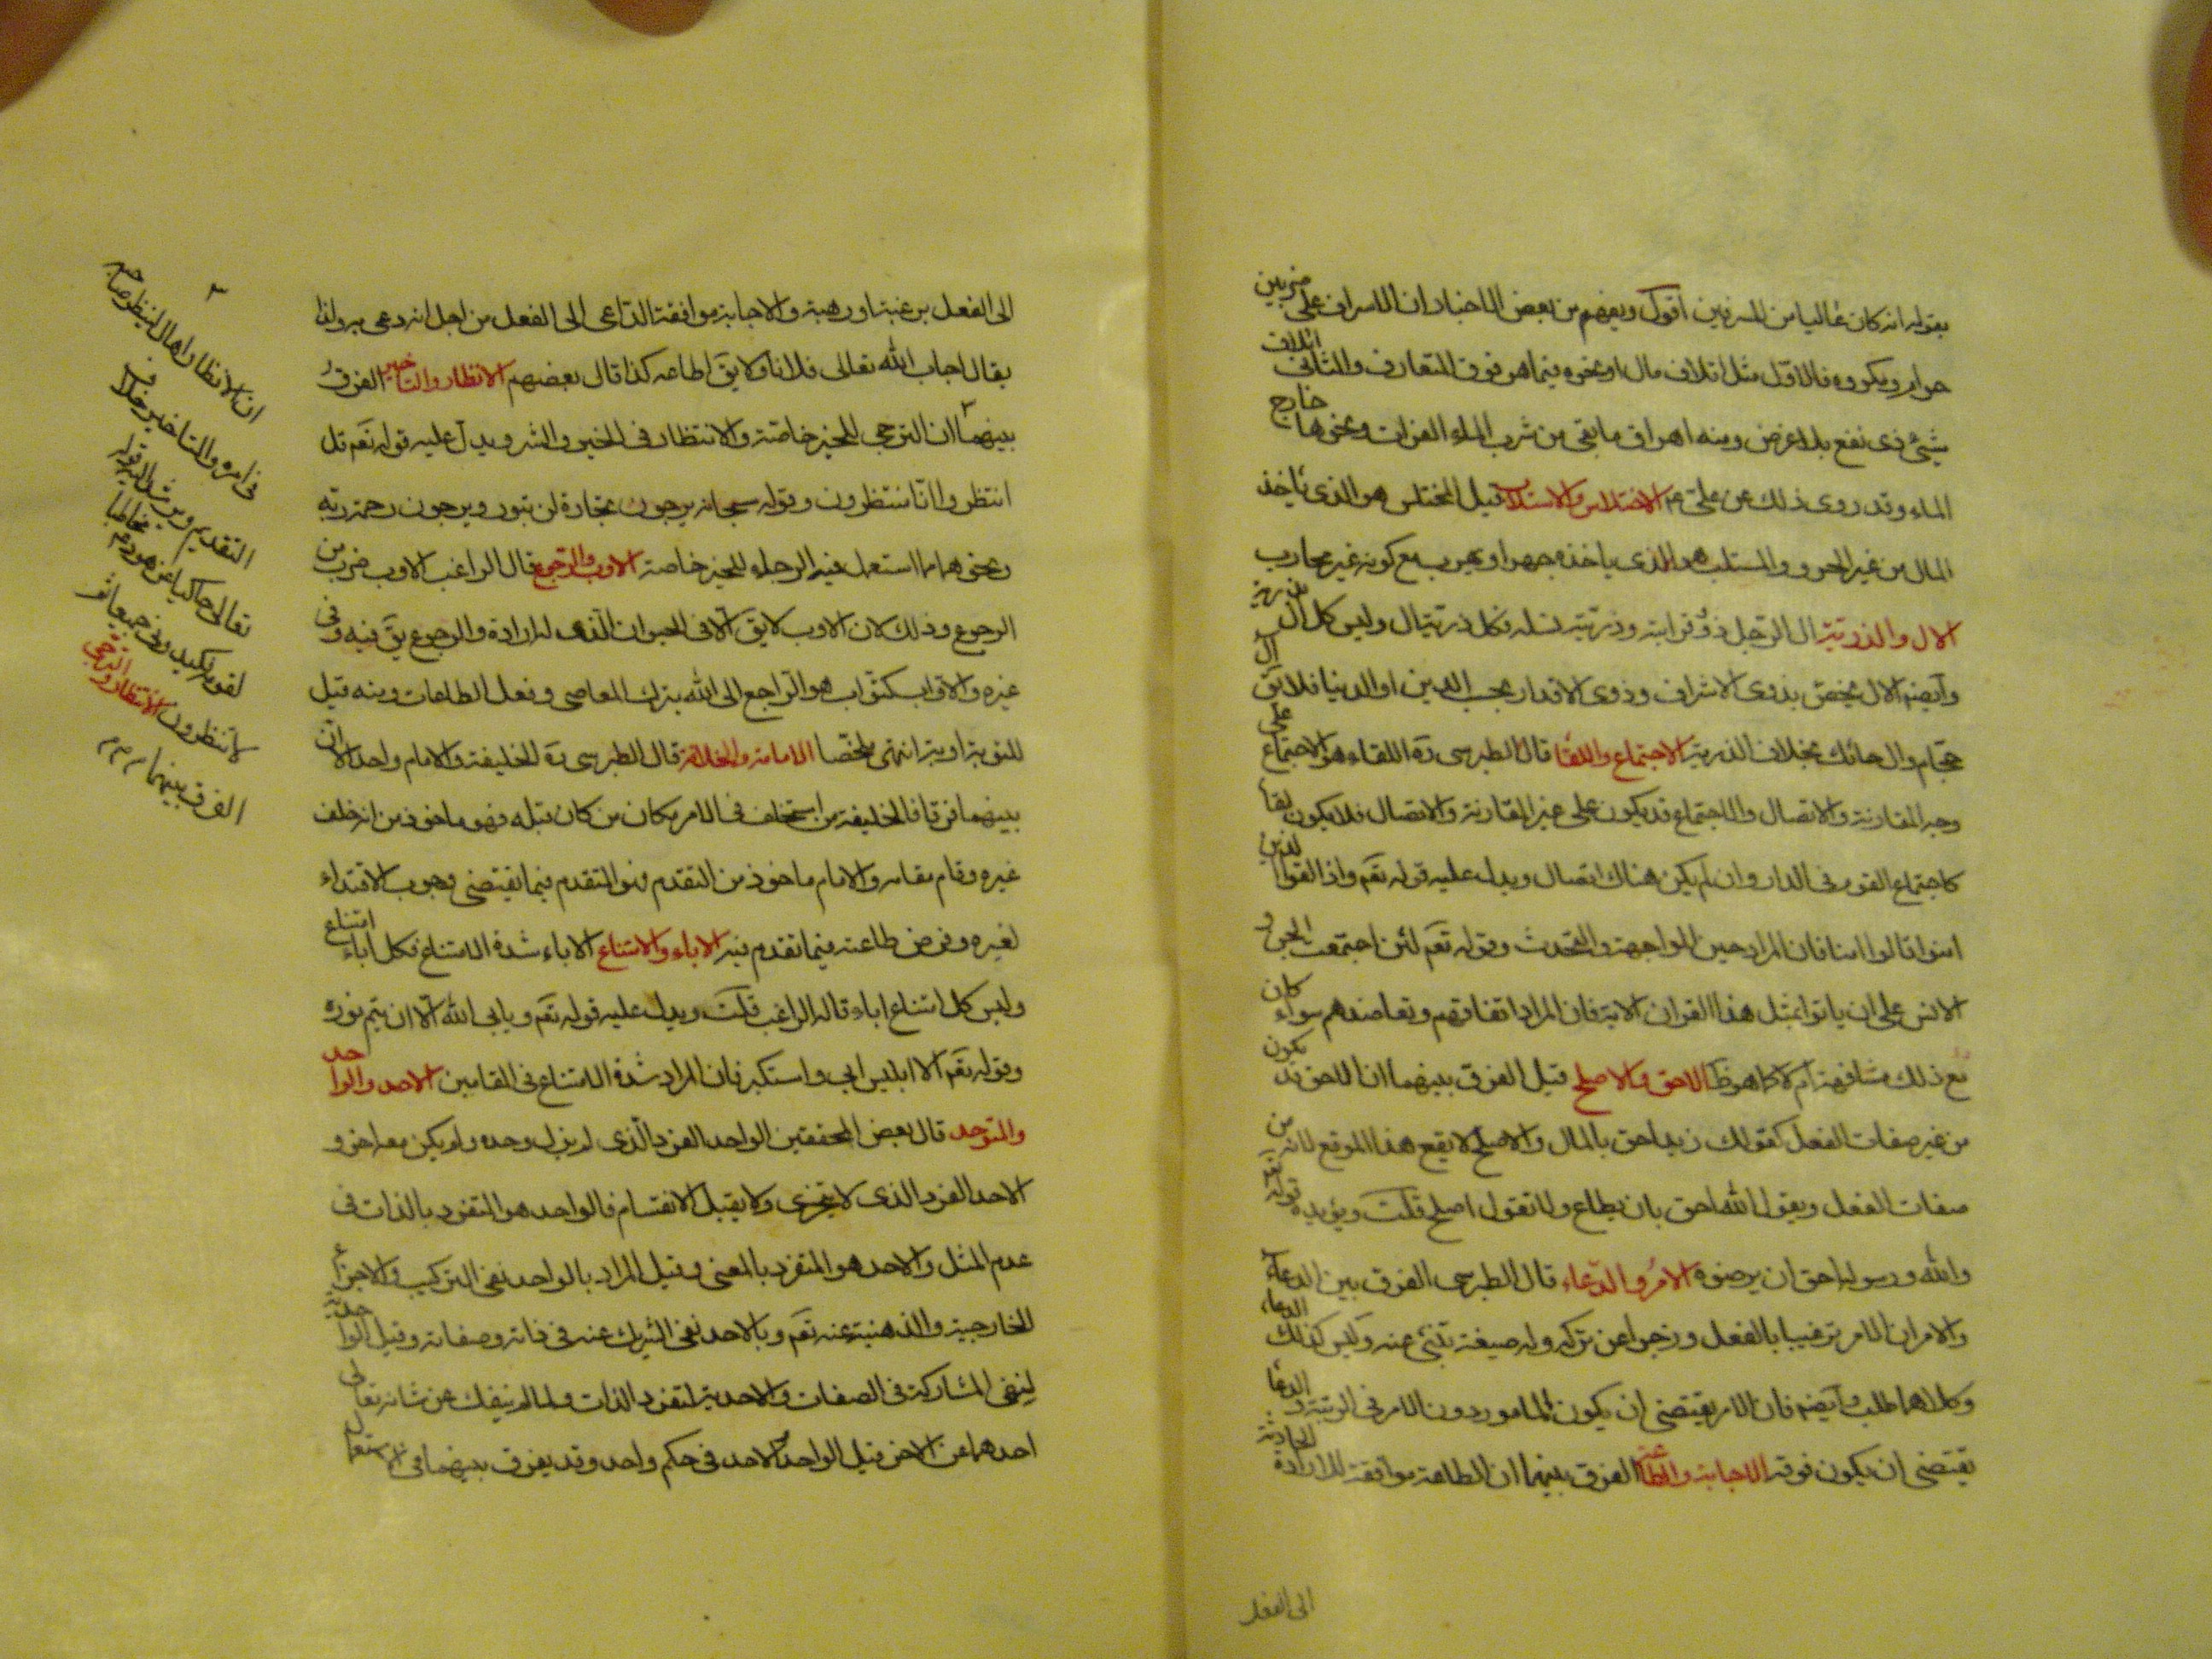 بقوله انه كان عاليا من المسرفين اقول ويفهم من بعض الاخبار ان الاسراف على ضربين
حرام ومكروه فالاول مثل اتلاف مال ونحوه فيما هو فوق المتعارف والثانى اتلاف
شيئ ذى نفع بلا غرض ومنه اهراق ما بقى من شرب الماء الفرات ونحوها خارج
الماء وقد روى ذلك عن على عم الاختلاس والاستلاب قيل المختلس هو الذى ياخذ
المال من غير الحرز والمستلب هو الذى ياخذه جهرا ويهرب مع كونه غير محارب
الال والذرية ال الرجل ذو قرابته وذريته نسله فكل ذرية ال وليس كل ال بذرية
وايضم الال يختص بذوى الاشراف وذوى الاقدار بحسب الدين او الدنيا فلا يق آل
حجام وال حائك بخلاف الذرية الاجتماع واللقا قال الطبرسى ره اللقاء هو الاجتماع على
وجه المقارنة والاتصال والاجتماع قد يكون على غير المقارنة والاتصال فلا يكون لقا
كاجتماع القوم فى الدار وان لم يكن هناك اتصال ويدل عليه قوله تعم واذا لقوا الذين
امنوا قالوا امنا فان المراد حين المواجهة والتحدث وقوله تعم لئن اجتمعت الجن و
الانس على ان ياتوا بمثل هذا القران الاية فان المراد اتفاقهم وتعاضدهم سواء كان
مع ذلك مشافهة ام لا كما هو ظ الاحق والاصلح قيل الفرق بينهما ان الاحق قد يكون
من غير صفات الفعل كقولك زيد احق بالمال والاصلح لا يقع هذا الموقع لانه من
صفات الفعل ويقول الله احق بان يطاع ولا تقول اصلح قلت ويؤيده قوله تعم
والله ورسوله احق ان يرضوه الامر والدعاء قال الطبرسى الفرق بين الدعاء
والامر ان الامر ترغيبا بالفعل وزجرا عن تركه وله صيغة تنبئ عنه وليس كذلك الدعاء
وكلاهما طلب وايضم فان الامر يقتضى ان يكون المامور دون الامر فى الرتبة والدعا
يقتضى ان يكون فوقه الاجابة والطاعة الفرق بينهما ان الطاعة موافقة للارادة الحادثة
الى الفعل
الى الفعل برغبة او رهبة والاجابة موافقة الداعى الى الفعل من اجل انه دعى به ولذا
يقال اجاب الله تعالى فلانا ولا يق اطاعه كذا قال بعضهم الانظار والتاخير الفرق
بينهما ان الترجى للخير خاصة والانتظار فى الخير والشر ويدل عليه قوله تعم قل
انتظروا انا منتظرون وقوله سبحانه يرجون تجارة لن تبور ويرجون رحمة ربه
ونحوهما مما استعمل فيه الرجاء للخير خاصة الاوب والرجوع قال الراغب الاوب ضرب من
الرجوع وذلك لان الاوب لا يق الا فى الحيوان الذى له ارادة والرجوع يق فيه وفى
غيره والاواب كتواب هو الراجع الى الله بترك المعاصى وفعل الطاعات ومنه قيل
للتوبة اوبة انتهى ملخصا الامامة والخلافة قال الطبرسى ره الخليفة والامام واحد الا ان
بينهما فرقا فالخليفة من استخلف فى الامر مكان من كان قبله فهو ماخوذ من انه خلف
غيره وقام مقامه والامام ماخوذ من التقدم فهو المتقدم فيما يقتضى وجوب الاقتداء
لغيره وفرض طاعته فيما تقدم فيه الاباء والامتناع الاباء شدة الامتناع فكل اباء امتناع
وليس كل امتناع اباء قاله الراغب قلت ويدل عليه قوله تعم ويابى الله الا ان يتم نوره
وقوله تعم الا ابليس ابى واستكبر فان المراد شدة الامتناع فى المقامين الاحد والواحد
والمتوحد قال بعض المحققين الواحد الفرد الذى لم يزل وحده ولم يكن معه اخر و
الاحد الفرد الذى لا يتجزى ولا يقبل الانقسام فالواحد هو المتفرد بالذات فى
عدم المثل والاحد هو المتفرد بالمعنى وقيل المراد بالواحد نفى التركيب والاجزاء
الخارجية والذهنية عنه تعم وبالاحد نفى الشريك عنه فى ذاته وصفاته وقيل الواحدية
لنفى المشاركة فى الصفات والاحدية لتفرد الذات ولما لم ينفك عن شانه تعالى
احدهما عن الاخر قيل الواحد والاحد فى حكم واحد وقد يفرق بينهما فى الاستعمال
ان الانظار امهال لينظر صاحبه
فى امره والتاخير خلاف
التقديم ويرشد اليه قوله
تعالى حاكيا عن هود عم مخاطبا
لقومه فكيدونى جميعا ثم
لا تنظرون الانتظار والترجى
الفرق بينهما